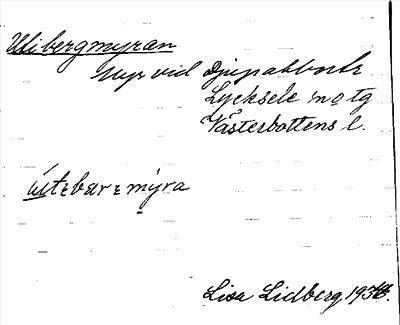 Utibergmyran
Myr vid Djupabbortr
Lycksele sn o tg
Västerbottens l.
ùtɛbærɛmýra
Lisa Lidberg, 1936.